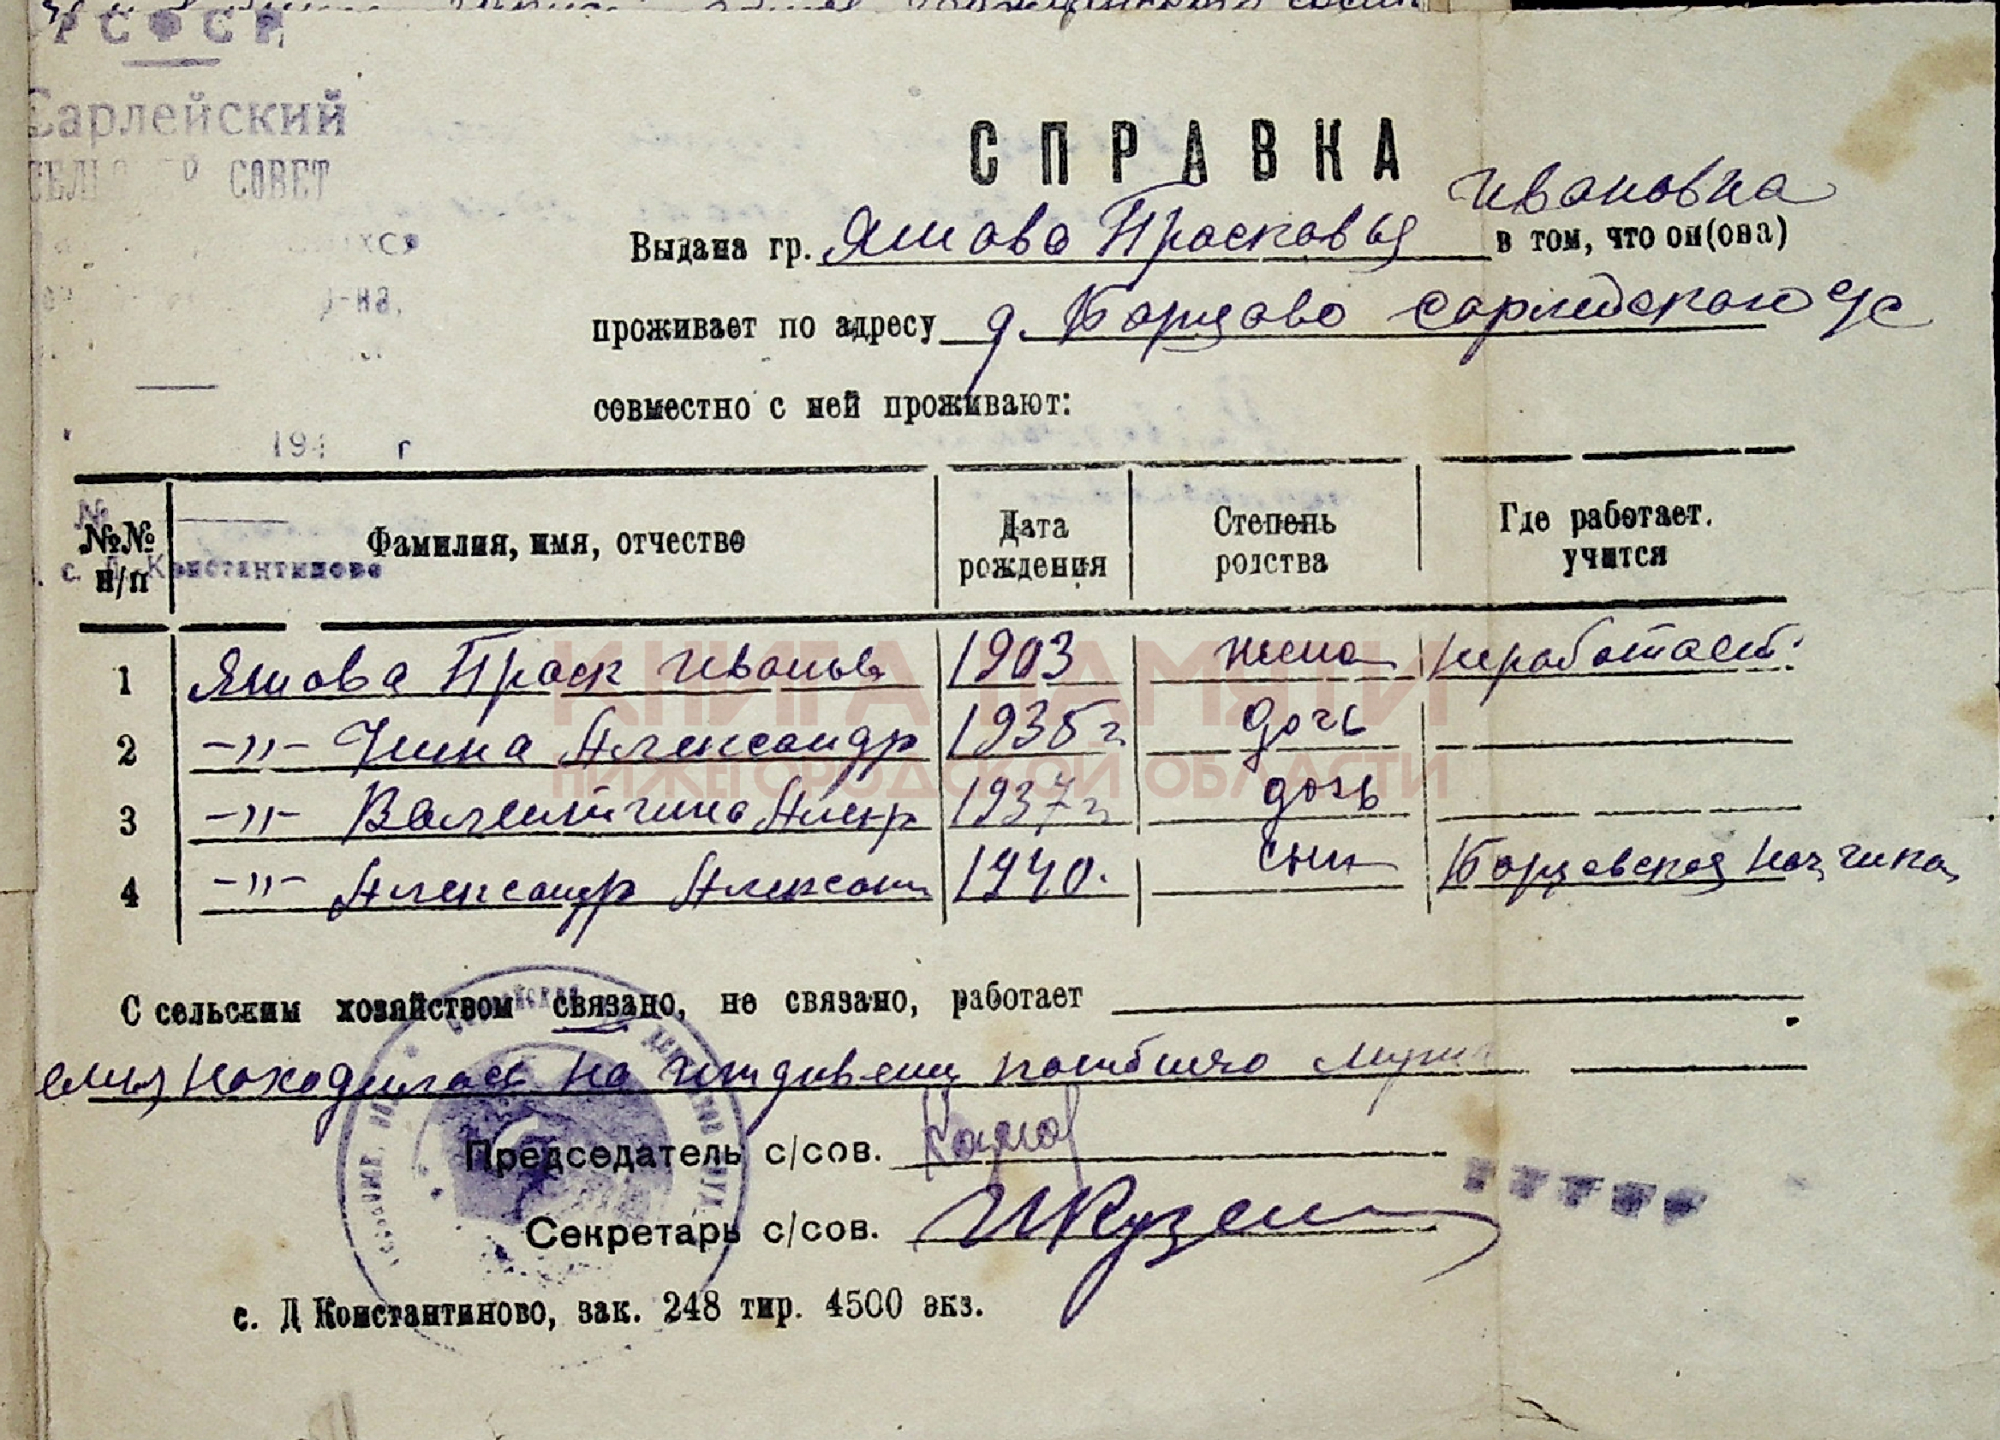 РСФСР
Сарлейский
СОВЕТ
р-на.
194 г
№
с. Д-Константиново
СПРАВКА
Выдана гр. Яшова Прасковья Ивановна в том, что он(она)
проживает по адресу д. Борцово Сарлейского с/с
совместно с ней проживают:
№№ п/п Фамилия, имя, отчество Дата рождения Степень родства Где работает. учится
1 Яшова Праск Иванов 1903 жена неработает.
2 -"- Нина Александр 1935 г дочь
3 -"- Валентина Алекр 1937 г дочь
4 -"- Александр Алексан 1940. сын Борцовская нач
КНИГА ПАМЯТИ
НИЖЕГОРОДСКОЙ ОБЛАСТИ
С сельским хозяйством связано, не связано, работает
находилась на иждивении погибшего мужа
Председатель с/сов.
Секретарь с/сов. И Кузем
с. Д Константиново, зак. 248 тир. 4500 экз.